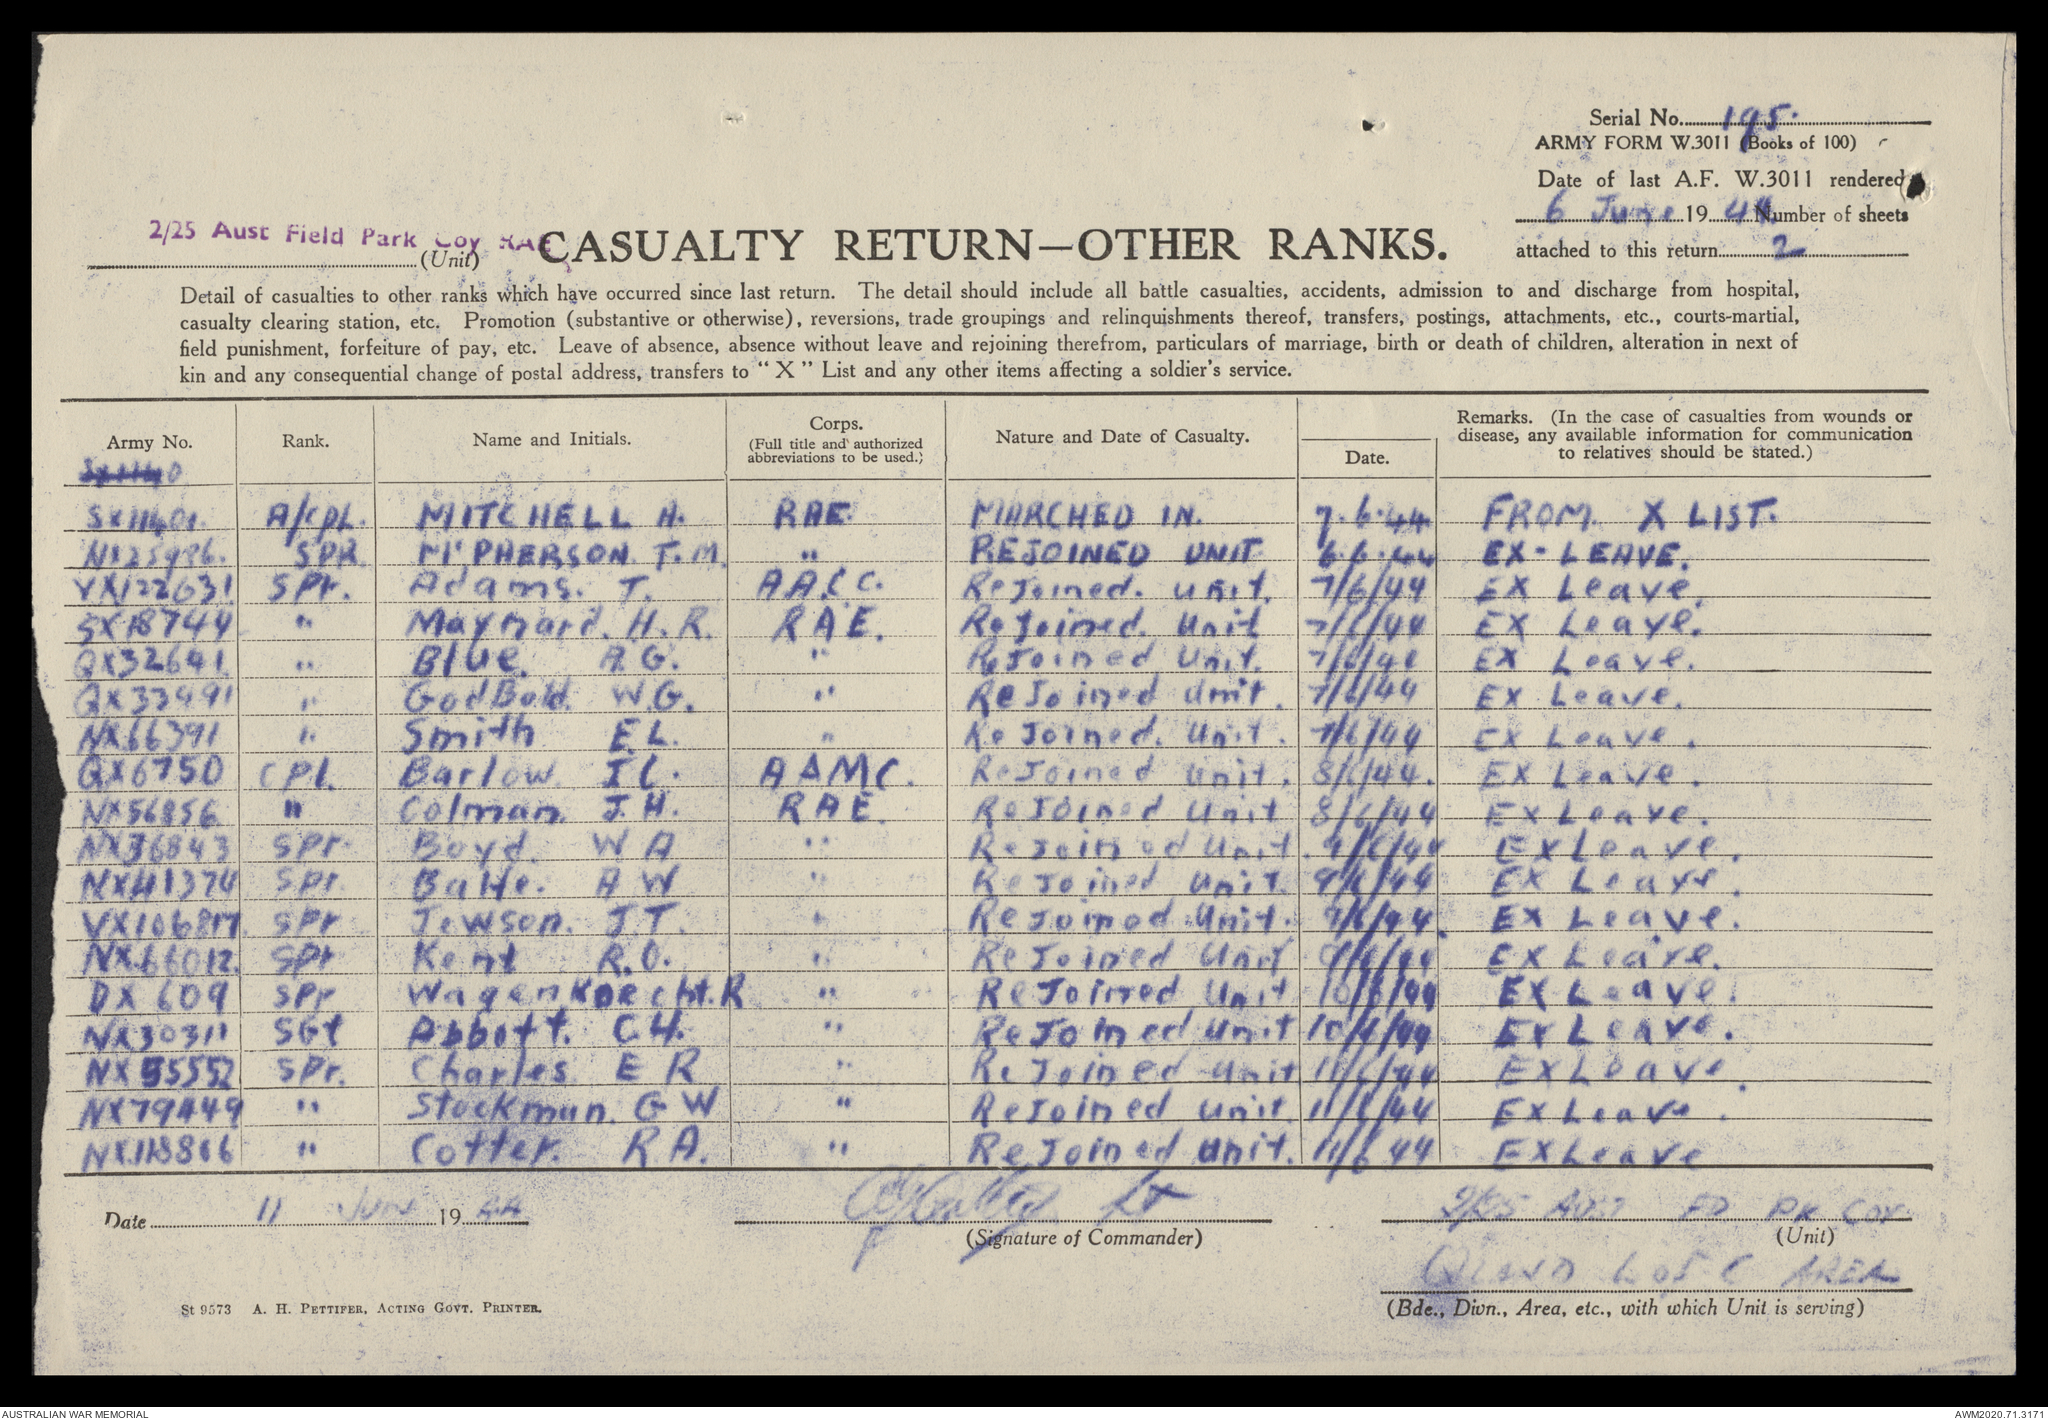 Serial No. 195.
ARMY FORM W.3011 (Books of 100)
Date of last A.F. W.3011 rendered
6 June 1944 Number of sheets
attached to this return 2
2/25 Aust Field Park Coy RAE
(Unit)
CASUALTY RETURN—OTHER RANKS.
Detail of casualties to other ranks which have occurred since last return. The detail should include all battle casualties, accidents, admission to and discharge from hospital,
casualty clearing station, etc. Promotion (substantive or otherwise), reversions, trade groupings and relinquishments thereof, transfers, postings, attachments, etc., courts-martial,
field punishment, forfeiture of pay, etc. Leave of absence, absence without leave and rejoining therefrom, particulars of marriage, birth or death of children, alteration in next of
kin and any consequential change of postal address, transfers to "X" List and any other items affecting a soldier's service.
Army No. Rank. Name and Initials. Corps. (Full title and authorized abbreviations to be used.) Nature and Date of Casualty. Date. Remarks. (In the case of casualties from wounds or disease, any available information for communication to relatives should be stated.)
SX11401. A/CPL. MITCHELL A. RAE. MARCHED IN. 7.6.44 FROM X LIST.
N125986. SPR. McPHERSON T.M. " REJOINED UNIT 6.6.44 EX-LEAVE.
VX122631 SPr. Adams. T. AACC. ReJoined. unit. 7/6/44 EX Leave.
SX18744 " Maynard. H.R. RAE. ReJoined. Unit 7/6/44 EX Leave.
QX32641 " Blue. A.G. " ReJoined Unit. 7/6/44 EX Leave.
QX33491 " GodBold. W.G. " ReJoined Unit. 7/6/44 EX Leave.
NX66391 " Smith E.L. " ReJoined. Unit. 7/6/44 EX Leave.
QX6750 CPl. Barlow. I C. AAMC. ReJoined Unit. 8/6/44. EX Leave.
NX56856 " Colman. J.H. RAE. ReJoined Unit 8/6/44 EX Leave.
NX36843 SPr. Boyd. W A " ReJoined Unit. 9/6/44 EX Leave.
NX41374 SPr. A W " ReJoined Unit. 9/6/44 EX Leave.
VX106817 SPr Jewson. J.T. " ReJoined Unit. 9/6/44. EX Leave.
NX66012. SPr Kent R.O. " ReJoined Unit 9/6/44 EX Leave.
DX 609 SPr Wagenknecht. R " ReJoined Unit 10/6/44 EX Leave.
NX30311 SGt Abbott. C.H. " ReJoined Unit 10/6/44 EX Leave.
NX55552 SPr. Charles E R " ReJoined Unit 11/6/44 EX Leave.
NX79449 " Stockman. G W " ReJoined Unit. 11/6/44 EX Leave.
NX118806 " Cotter. R A. " ReJoined Unit. 11/6 44 EX Leave
Date 11 June 1944
Lt
F
(Signature of Commander)
2/25 AUST FD PK COY
(Unit)
QLAND L OF C AREA
(Bde., Divn., Area, etc., with which Unit is serving)
St 9573 A. H. PETTIFER, ACTING GOVT. PRINTER.
AUSTRALIAN WAR MEMORIAL
AWM2020.71.3171